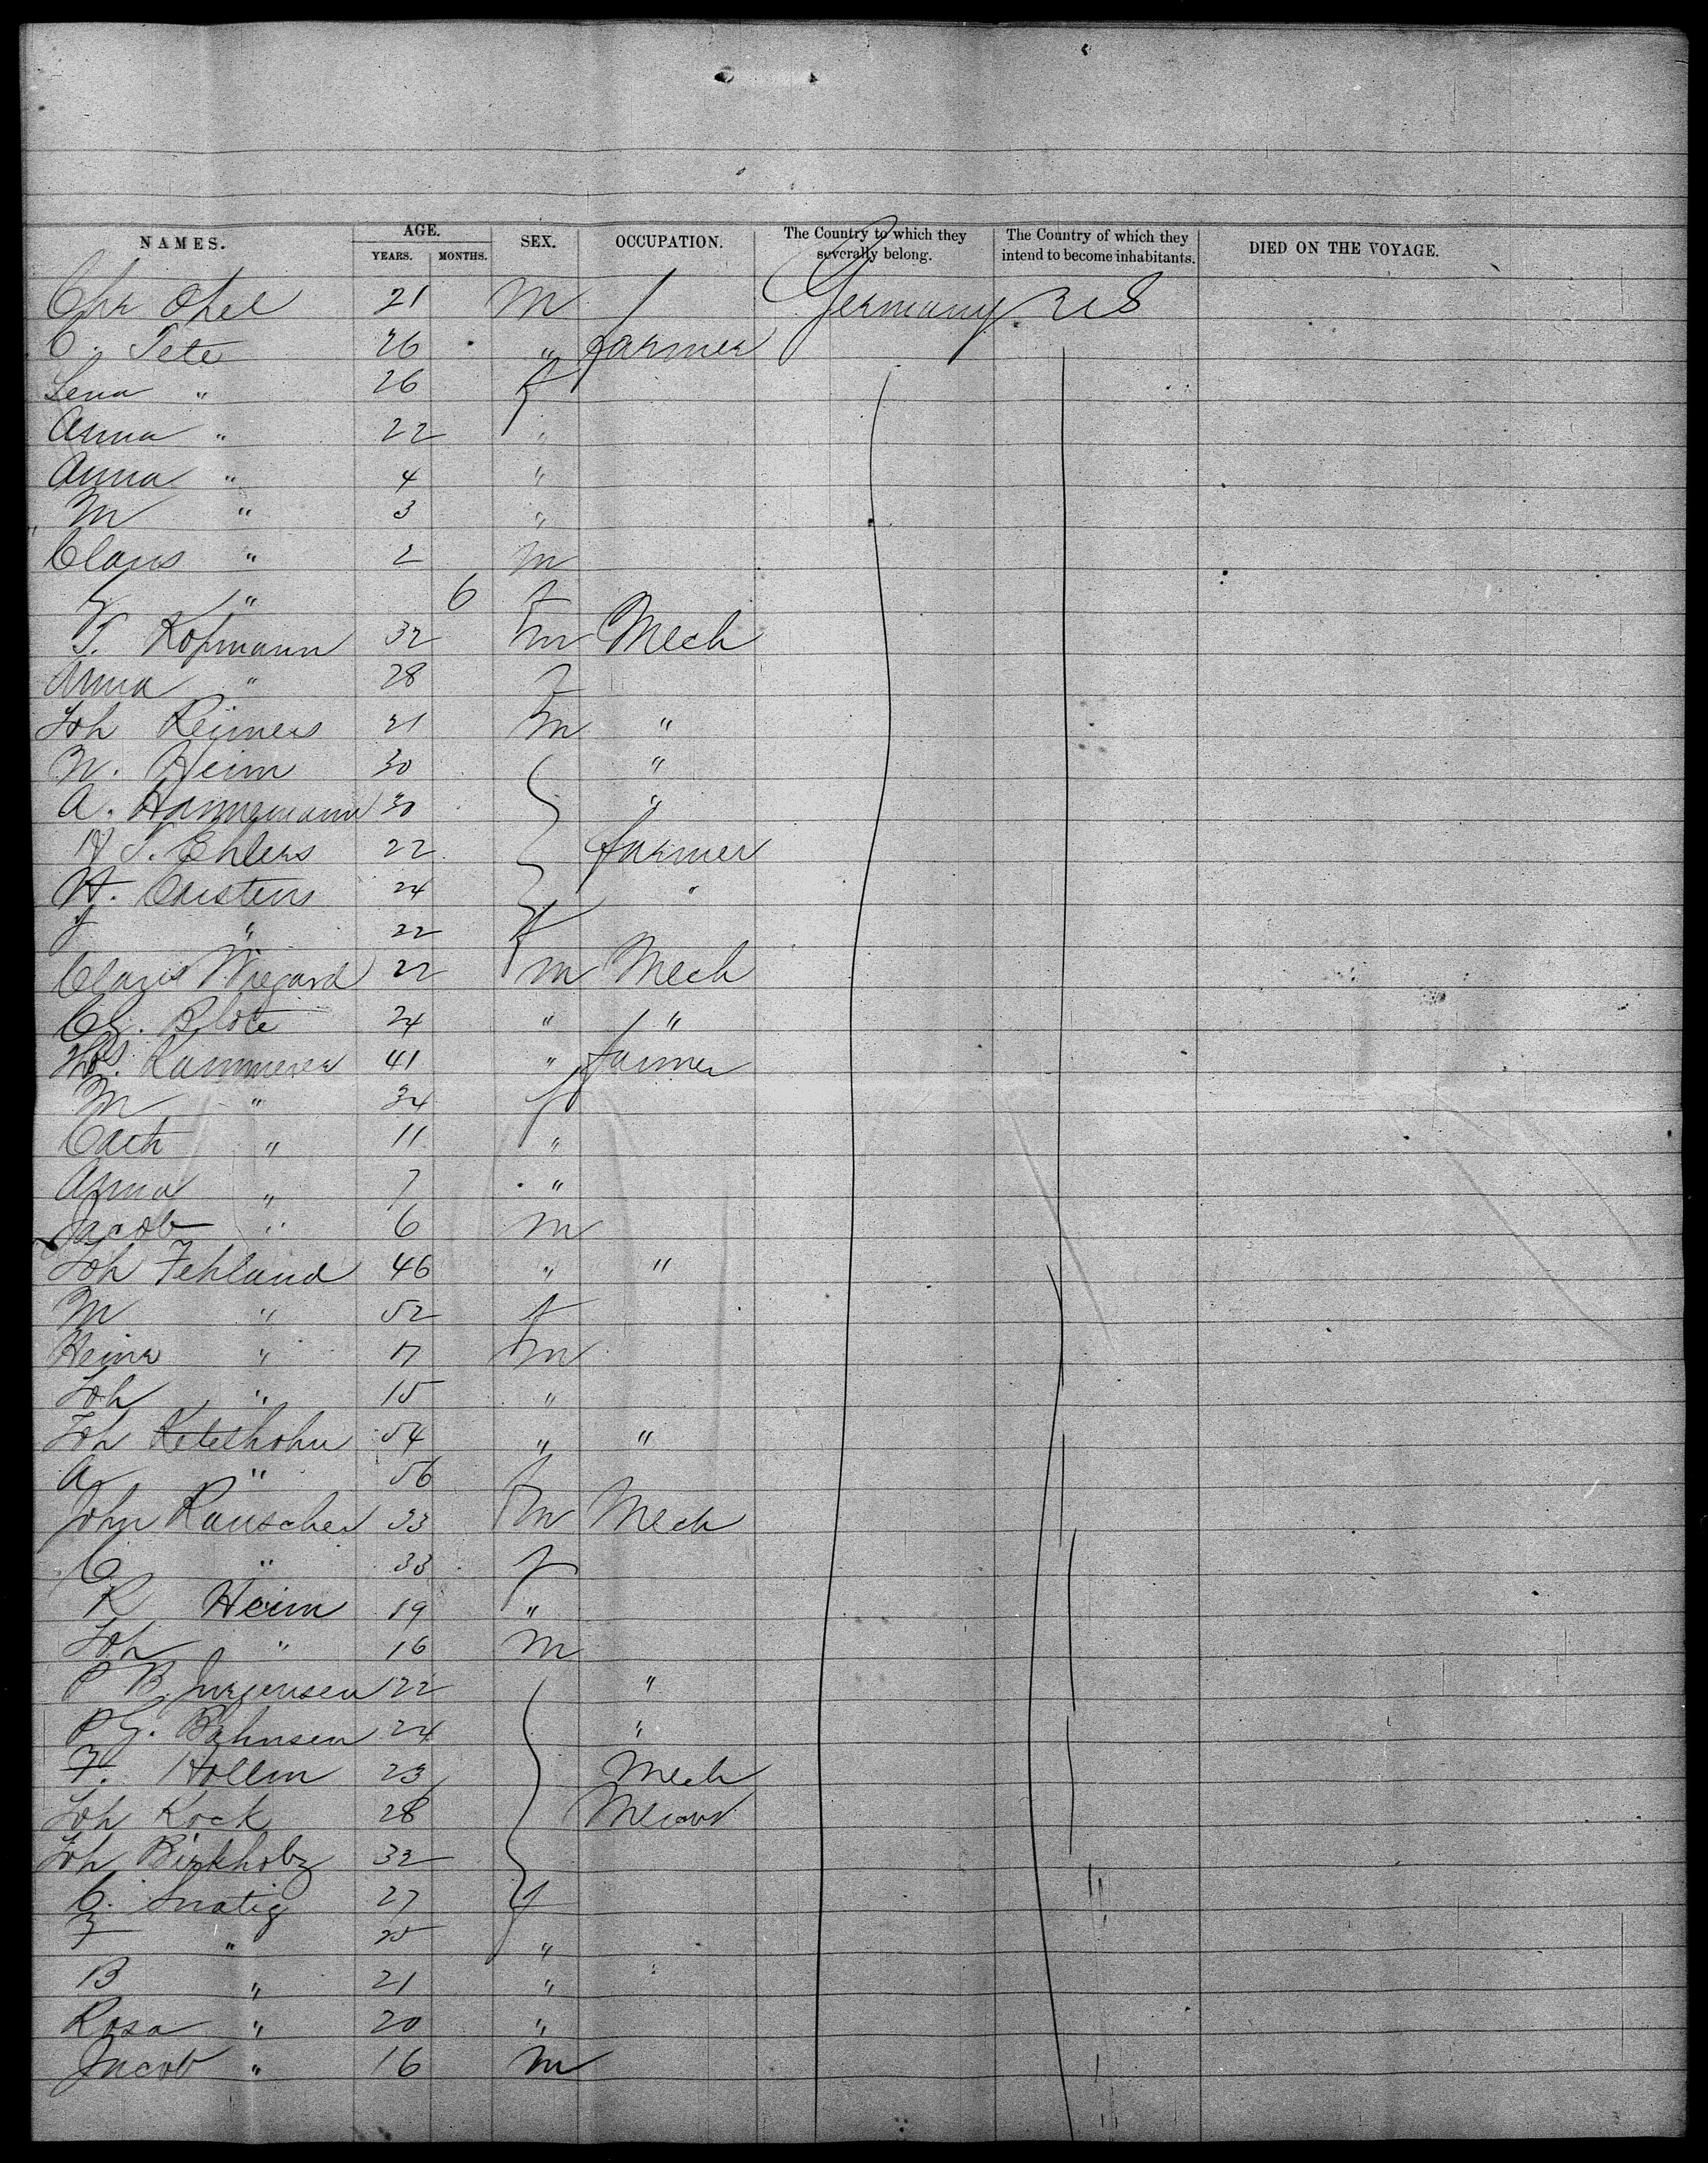 NAMES. AGE. SEX. OCCUPATION. The Country to which they severally belong. The Country of which they intend to become inhabitants. DIED ON THE VOYAGE.
YEARS. MONTHS.
Chr Ohel 21 m Germany U S
C. Tete 26 " farmer
Lena " 26 f
Anna " 22 "
Anna " 4 "
M " 3 "
Claus " 2 m
" 6 f
T. Kofmann 32 m Mech
Anna " 28 f
Joh Reimers 21 m "
N. Heim 30 "
A. Hannemann 30 "
H J. Ehlers 22 farmer
H. Carstens 24 "
J " 22 f
Claus Wiegard 22 m Mech
Cl. Blote 24 " "
Ths. Kammerer 41 " farmer
M " 34 f
Cath " 11 "
Anna " 7 "
Jacob " 6 m
Joh Fehland 46 " "
M " 52 f
Heinr " 17 m
Joh " 15 "
Joh Keteshohn 54 " "
A " 56 f
John Rauscher 33 m Mech
C " 33 f
R Heim 19 "
Joh " 16 m
P B. Jurgensen 22 "
P G. Bahnsen 24 "
F. Hollm 23 Mech
Joh Kock 28
Joh Birkholz 32
C. Snatig 27 f
F " 25 "
B " 21 "
Rosa " 20 "
Jacob " 16 m